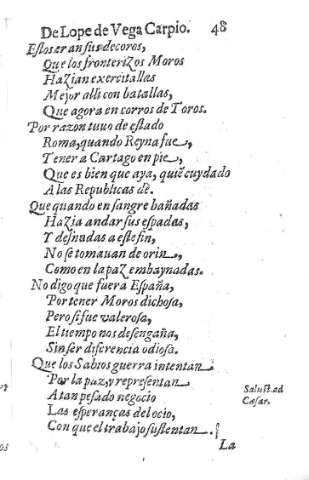 De Lope de Vega Carpio. 48
Estos eran sus decoros,
Que los fronterizos Moros
Hazian exercitallas
Mejor alli con batallas,
Que agora en corros de Toros.
Por razon tuuo de estado
Roma, quando Reyna fue,
Tener a Cartago en pie,
Que es bien que aya, quiẽ cuydado
A las Republicas dè.
Que quando en sangre bañadas
Hazia andar sus espadas,
Y desnudas a este fin,
No se tomauan de orin,
Como en la paz embaynadas.
No digo que fuera España,
Por tener Moros dichosa,
Pero si fue valerosa,
El tiempo nos desengaña,
Sin ser diferencia odiosa.
Que los Sabios guerra intentan
Por la paz, y representan
A tan pesado negocio
Las esperanças del ocio,
Con que el trabajo sustentan.
Salust. ad
Cæsar.
La